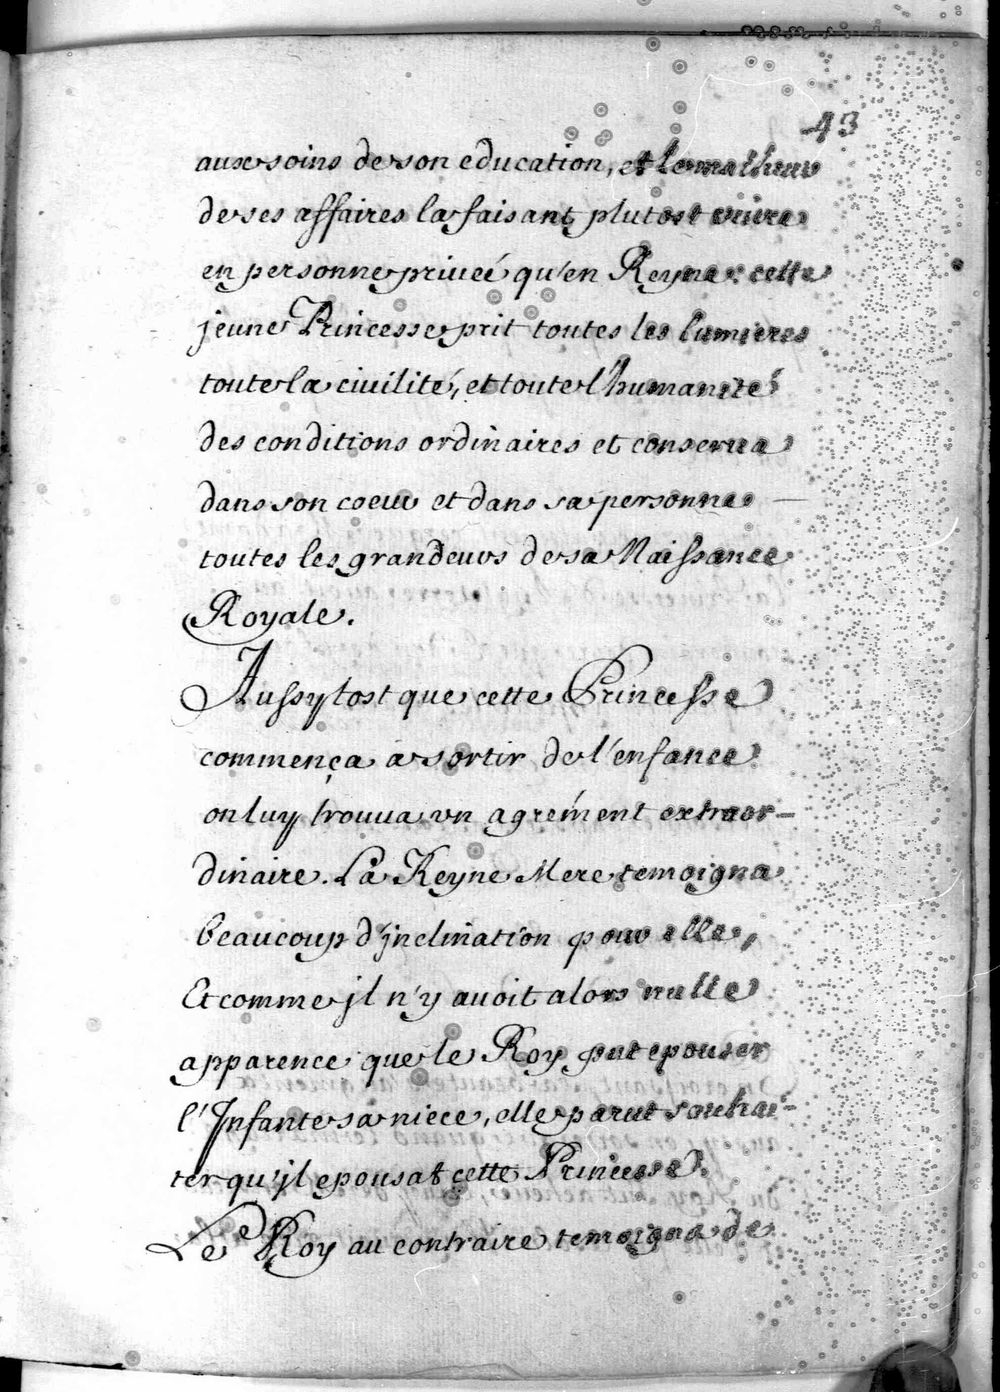 43
aux soins de son education, et le malheur
de ses affaires la faisant plutost vivre
en personne priueé qu'en Reyne : cette
jeune Princesse prit toutes les lumieres
toute la ciuilité, et toute l'humanité
des conditions ordinaires et conserua
dans son coeur et dans sa personne —
toutes les grandeurs de sa Naissance
Royale.
Aussytost que cette Princesse
commença a sortir de l'enfance
on luy trouua vn agrément extraor-
dinaire. La Reyne Mere temoigna
beaucoup d'jnclination pour elle,
Et comme jl n'y auoit alors nulle
apparence que le Roy put epouser
l'Jnfante sa niece, elle parut souhai-
ter qu'jl epousat cette Princesse.
Le Roy au contraire temoigna de